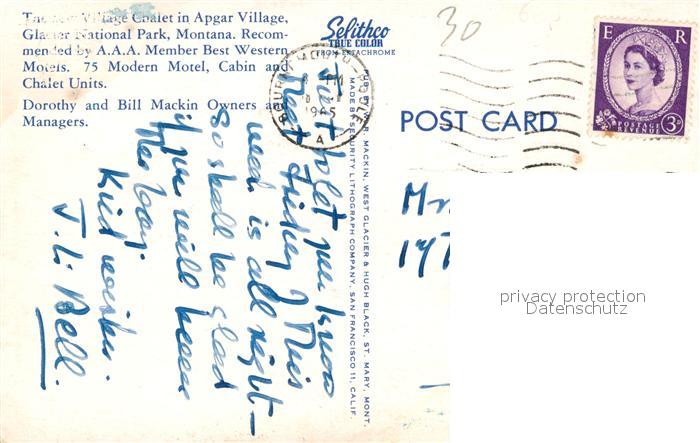 The new Village Chalet in Apgar Village,
Glacier National Park, Montana. Recom-
mended by A.A.A. Member Best Western
Motels. 75 Modern Motel, Cabin and
Chalet Units.
Dorothy and Bill Mackin Owners and
Managers.
Selithco
TRUE COLOR
FROM EKTACHROME
30
PM
1965
A
E R
POSTAGE
REVENUE
3D
POST CARD
MACKIN, WEST GLACIER & HUGH BLACK, ST. MARY, MONT.
MADE BY SECURITY LITHOGRAPH COMPANY, SAN FRANCISCO 11, CALIF.
Just to let you know
next Friday this
week is all right –
so shall be glad
if you will keep
Kind wishes.
J. L. Bell.
privacy protection
Datenschutz